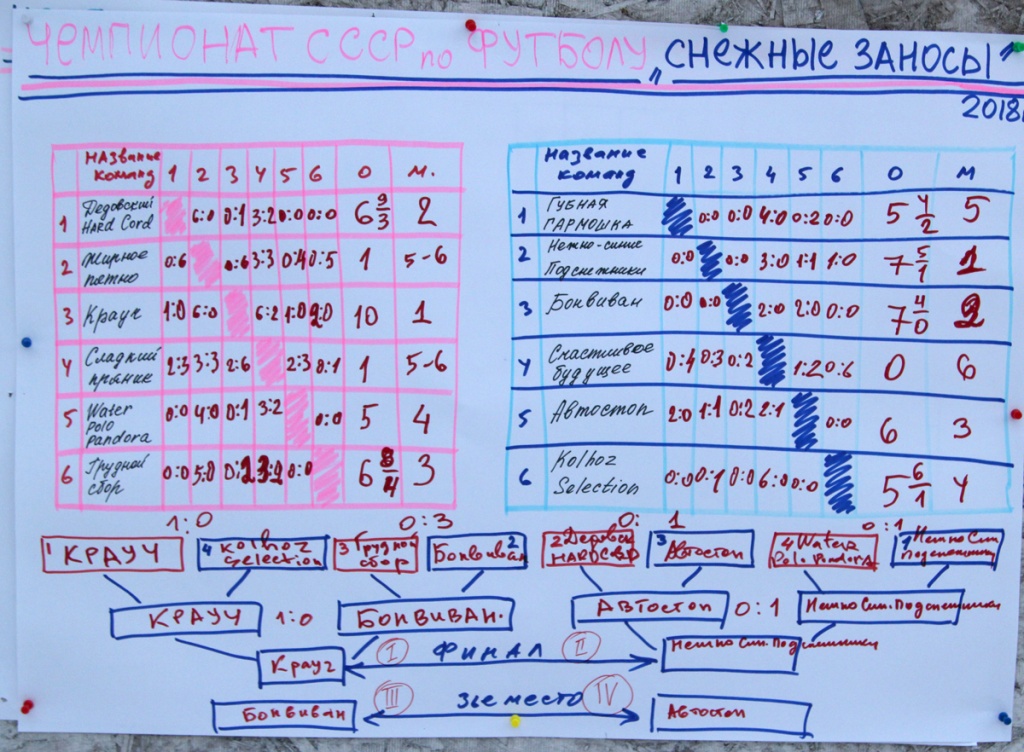 ЧЕМПИОНАТ СССР по ФУТБОЛУ „СНЕЖНЫЕ ЗАНОСЫ"
2018
НАЗВАНИЕ КОМАНД 1 2 3 4 5 6 О М.
1 Дедовский HARD Cord 6:0 0:1 3:2 0:0 0:0 6 9/3 2
2 Жирное пятно 0:6 0:6 3:3 0:4 0:5 1 5-6
3 Крауч 1:0 6:0 6:2 1:0 10 1
4 Сладкий пряник 2:3 3:3 2:6 2:3 0:1 1 5-6
5 Water Polo Pandora 0:0 4:0 0:1 3:2 0:0 5 4
6 Грудной сбор 0:0 5:0 0:0 6 8/4 3
Название команд 1 2 3 4 5 6 О М
1 ГУБНАЯ ГАРМОШКА 0:0 0:0 4:0 0:2 0:0 5 4/2 5
2 Нежно-синие Подснежники 0:0 0:0 3:0 1:1 1:0 7 5/1 1
3 Бонвиван 0:0 0:0 2:0 2:0 0:0 7 4/0 2
4 Счастливое будущее 0:4 0:3 0:2 1:2 0:6 0 6
5 Автостоп 2:0 1:1 0:2 2:1 0:0 6 3
6 Kolhoz Selection 0:0 0:1 0:0 6:0 0:0 5 6/1 4
1:0 0:3 0: 1 0:1
1 КРАУЧ 4 Kolhoz Selection 3 Грудной сбор Бонвиван 2 2 Дедовс HARDCORD 3 Автостоп 4 Water Polo Pandora 1 Нежно Син. Подснежники
КРАУЧ 1:0 БОНВИВАН. АВТОСТОП 0:1 Нежно Син. Подснежники
Крауч I ФИНАЛ II Нежно Син. Подснежники
Бонвиван III 3ье место IV Автостоп